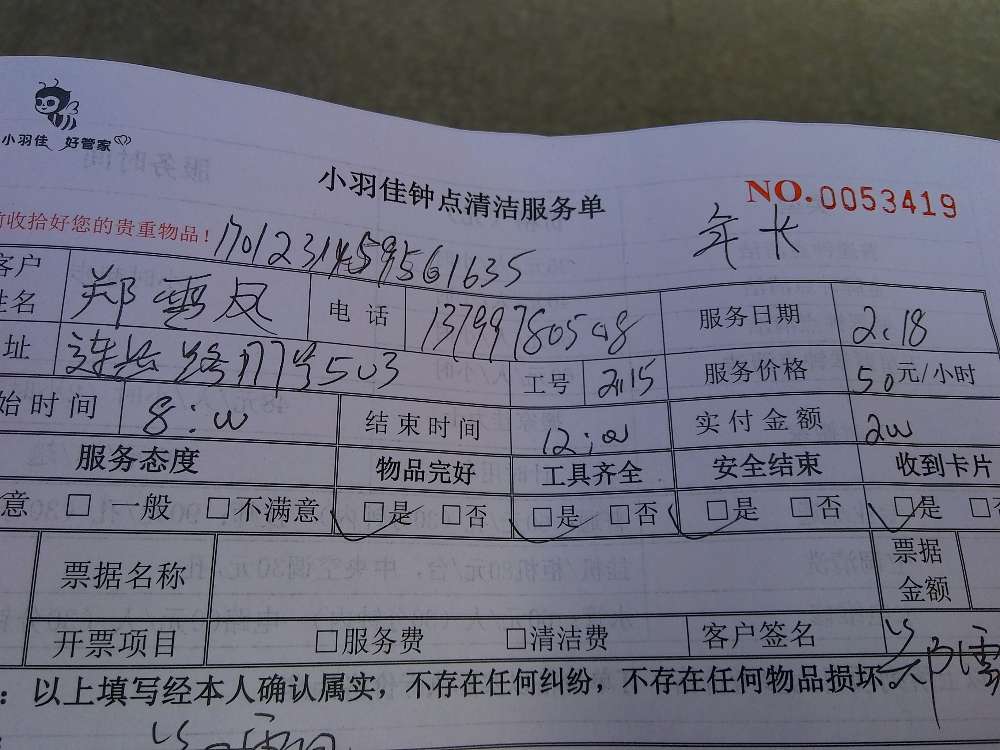 小羽佳 好管家
小羽佳钟点清洁服务单 NO.0053419
前收拾好您的贵重物品! 1701231459561635 年长
客户姓名 郑雪凤 电话 13799780508 服务日期 2.18
址 莲岳路177号503 工号 2115 服务价格 50元/小时
始时间 8:00 结束时间 12:00 实付金额 200
服务态度 物品完好 工具齐全 安全结束 收到卡片
意 □一般 □不满意 □是 □否 □是 □否 □是 □否 □是 □否
票据名称 票据金额
开票项目 □服务费 □清洁费 客户签名
: 以上填写经本人确认属实,不存在任何纠纷,不存在任何物品损坏